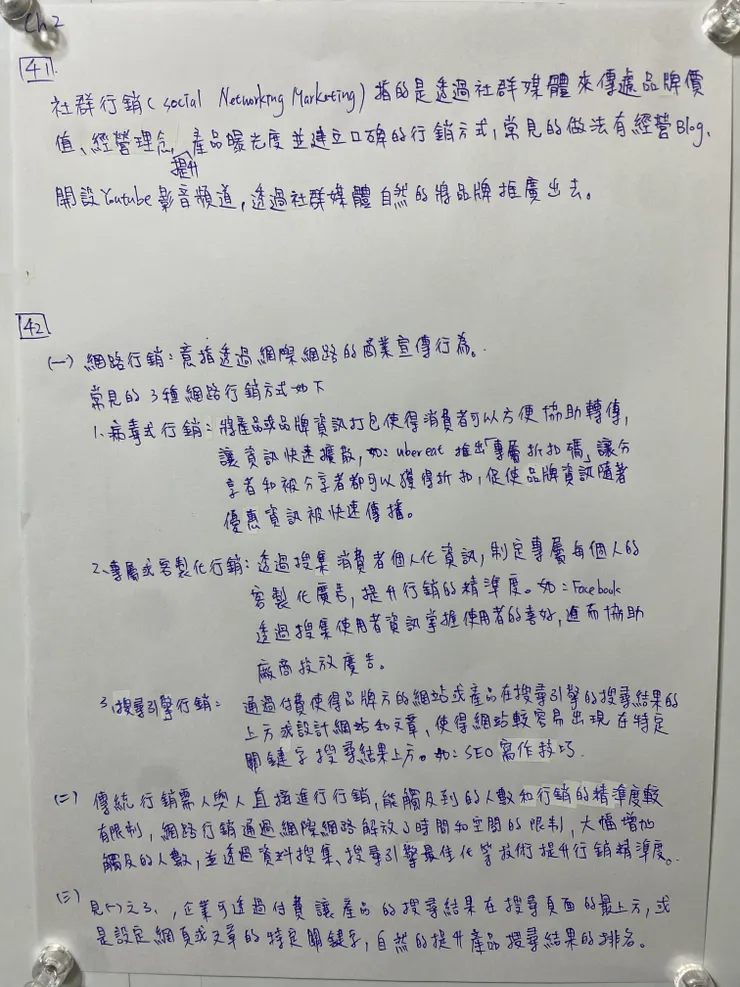 Ch 2
41.
社群行銷(social Networking Marketing)指的是透過社群媒體來傳遞品牌價
值、經營理念,提升產品曝光度並建立口碑的行銷方式,常見的做法有經營Blog、
開設Youtube影音頻道,透過社群媒體自然的將品牌推廣出去。
42.
(一)網路行銷:意指透過網際網路的商業宣傳行為。
常見的3種網路行銷方式如下
1、病毒式行銷:將產品或品牌資訊打包使得消費者可以方便協助轉傳,
讓資訊快速擴散,如:uber eat 推出「專屬折扣碼」讓分
享者和被分享者都可以獲得折扣,促使品牌資訊隨著
優惠資訊被快速傳播。
2、專屬或客製化行銷:透過搜集消費者個人化資訊,制定專屬每個人的
客製化廣告,提升行銷的精準度。如:Facebook
透過搜集使用者資訊掌握使用者的喜好,進而協助
廠商投放廣告。
3、搜尋引擎行銷:通過付費使得品牌方的網站或產品在搜尋引擎的搜尋結果的
上方或設計網站和文章,使得網站較容易出現在特定
關鍵字搜尋結果上方。如:SEO寫作技巧.
(二)傳統行銷需人與人直接進行行銷,能觸及到的人數和行銷的精準度較
有限制,網路行銷通過網際網路解放了時間和空間的限制,大幅增加
觸及的人數,並透過資料搜集、搜尋引擎最佳化等技術提升行銷精準度。
(三)見(一)之3.,企業可透過付費讓產品的搜尋結果在搜尋頁面的最上方,或
是設定網頁或文章的特定關鍵字,自然的提升產品搜尋結果的排名。